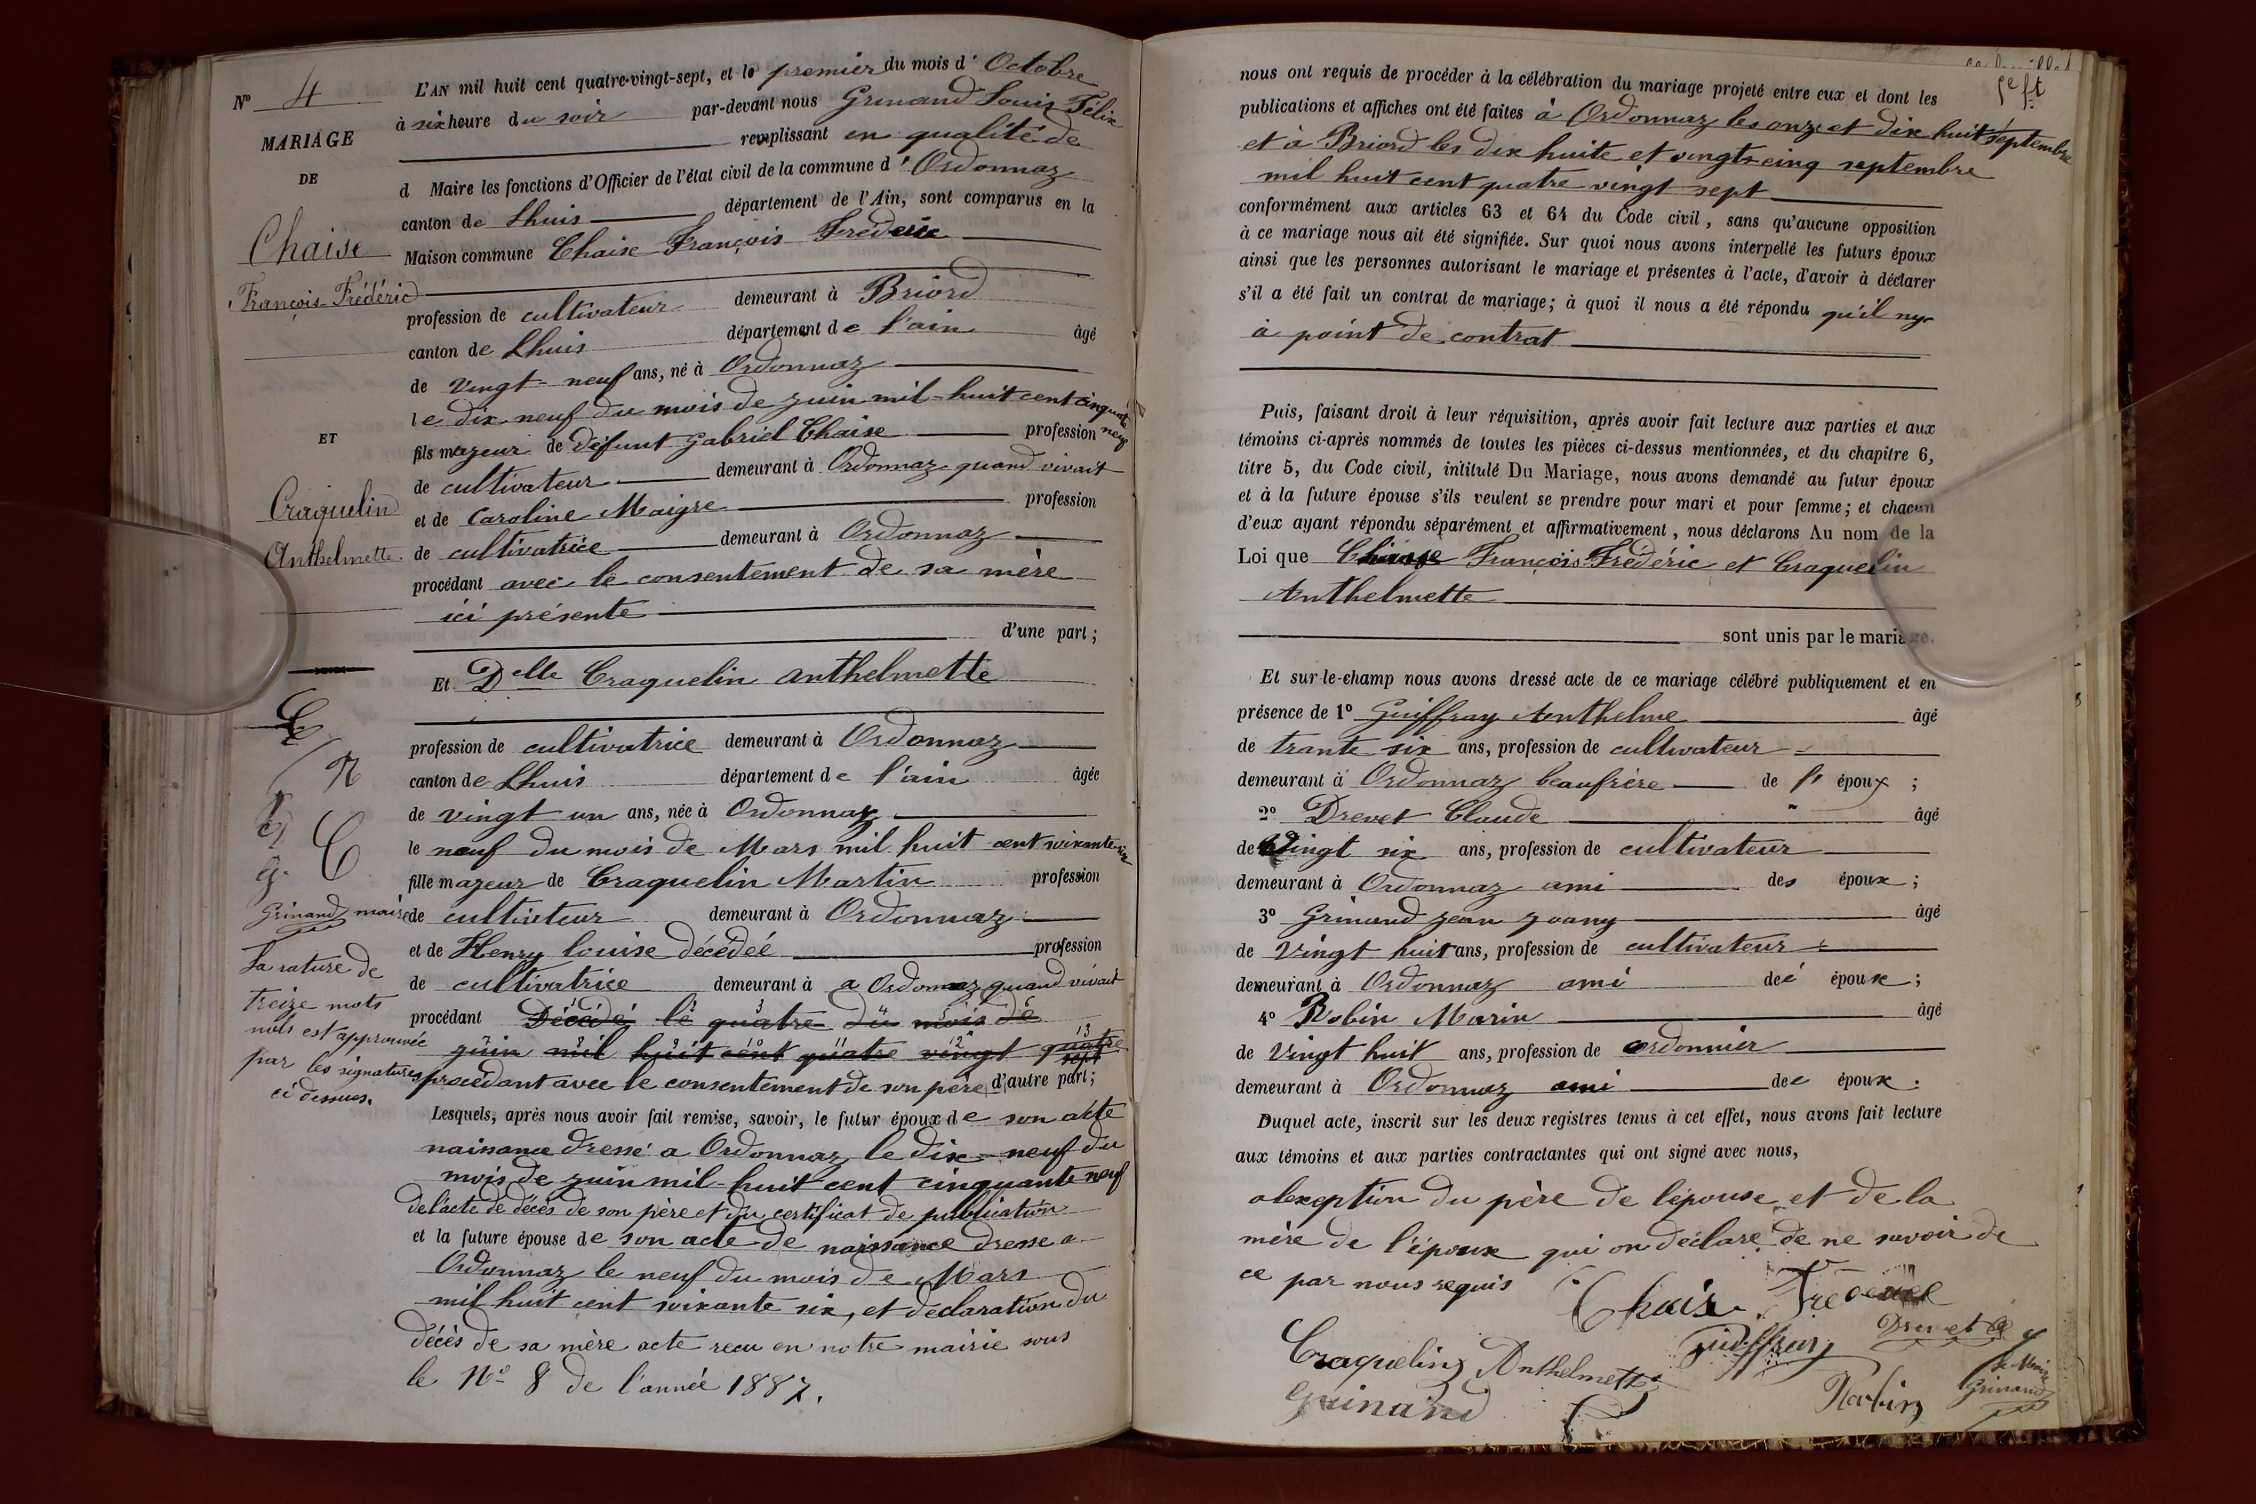 N° 4
MARIAGE
DE
Chaise
François Frédéric
ET
Craquelin
Anthelmette.
Grinand maire
La rature de
treize mots
nuls est approuvée
par les signatures
ci dessus.
L'AN mil huit cent quatre-vingt-sept, et le premier du mois d'Octobre
à six heure du soir par-devant nous Grinand Louis Félix
remplissant en qualité de
d Maire les fonctions d'Officier de l'état civil de la commune d'Ordonnaz
canton de Lhuis département de l'Ain, sont comparus en la
Maison commune Chaise François Frédéric
profession de cultivateur demeurant à Briord
canton de Lhuis département de l'ain âgé
de vingt-neuf ans, né à Ordonnaz
le dix neuf du mois de juin mil-huit cent cinquante
neuf
fils mageur de défunt Gabriel Chaise profession
de cultivateur demeurant à Ordonnaz quand vivait
et de Caroline Maigre profession
de cultivatrice demeurant à Ordonnaz
procédant avec le consentement de sa mère
ici présente
d'une part;
Et Delle Craquelin Anthelmette
profession de cultivatrice demeurant à Ordonnaz
canton de Lhuis département de l'ain âgée
de vingt un ans, née à Ordonnaz
le neuf du mois de Mars mil huit cent soixante-six
fille mageur de Craquelin Martin profession
de cultivateur demeurant à Ordonnaz
et de Henry Louise décédeé profession
de cultivatrice demeurant à a Ordonnaz quand vivait
procédant Décédé le quatre du mois de
juin mil huit cent quatre vingt quatre
sept
procédant avec le consentement de son père d'autre part;
Lesquels, après nous avoir fait remise, savoir, le futur époux de son acte
naissance dressé a Ordonnaz le dix-neuf du
mois de juin mil-huit cent cinquante neuf
de l'acte de décès de son père et du certificat de publication
et la future épouse de son acte de naissance dresse a
Ordonnaz le neuf du mois de Mars
mil huit cent soixante six, et declaration du
décès de sa mère acte recu en notre mairie sous
le No 8 de l'année 1887.
nous ont requis de procéder à la célébration du mariage projeté entre eux et dont les
publications et affiches ont été faites à Ordonnaz les onze et dix huit septembre
et à Briord les dix huite et vingts-cinq septembre
mil huit cent quatre vingt sept
conformément aux articles 63 et 64 du Code civil, sans qu'aucune opposition
à ce mariage nous ait été signifiée. Sur quoi nous avons interpellé les futurs époux
ainsi que les personnes autorisant le mariage et présentes à l'acte, d'avoir à déclarer
s'il a été fait un contrat de mariage; à quoi il nous a été répondu qu'il ny
à point de contrat
Puis, faisant droit à leur réquisition, après avoir fait lecture aux parties et aux
témoins ci-après nommés de toutes les pièces ci-dessus mentionnées, et du chapitre 6,
titre 5, du Code civil, intitulé Du Mariage, nous avons demandé au futur époux
et à la future épouse s'ils veulent se prendre pour mari et pour femme; et chacun
d'eux ayant répondu séparément et affirmativement, nous déclarons Au nom de la
Loi que Chaise François Frédéric et Craquelin
Anthelmette
sont unis par le mariage.
Et sur-le-champ nous avons dressé acte de ce mariage célébré publiquement et en
présence de 1° Guiffray Anthelme âgé
de trante six ans, profession de cultivateur
demeurant à Ordonnaz beaufrère de époux;
2° Drevet Claude âgé
de Vingt six ans, profession de cultivateur
demeurant à Ordonnaz ami des époux;
3° Grinand Jean Joany âgé
de Vingt huit ans, profession de cultivateur
demeurant à Ordonnaz ami de époux;
4° Robin Marin âgé
de Vingt huit ans, profession de cordonnier
demeurant à Ordonnaz ami de époux.
Duquel acte, inscrit sur les deux registres tenus à cet effet, nous avons fait lecture
aux témoins et aux parties contractantes qui ont signé avec nous,
alexeption du père de l'épouse et de la
mère de l'époux qui on déclare de ne savoir de
ce par nous requis
Chaise Frédéric
Craquelin Anthelmette
Guiffray
Drevet
Grinand
Robin
le Maire
Grinand